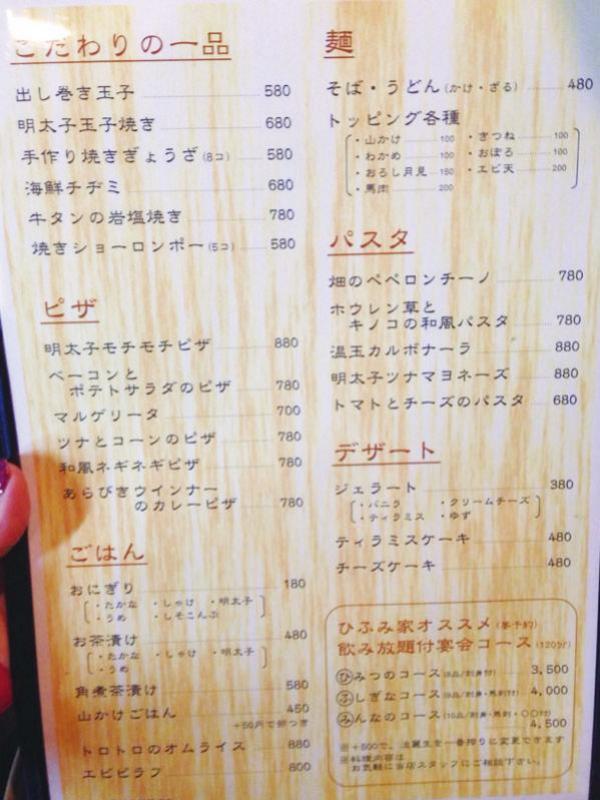 こだわりの一品
出し巻き玉子 580
明太子玉子焼き 680
手作り焼きぎょうざ(8コ) 580
海鮮チヂミ 680
牛タンの岩塩焼き 780
焼きショーロンポー(5コ) 580
ピザ
明太子モチモチピザ 880
ベーコンと
ポテトサラダのピザ 780
マルゲリータ 700
ツナとコーンのピザ 780
和風ネギネギピザ 780
あらびきウインナー
のカレーピザ 780
ごはん
おにぎり 180
・たかな ・しゃけ ・明太子
・うめ ・しそこんぶ
お茶漬け 480
・たかな ・しゃけ ・明太子
・うめ
角煮茶漬け 580
山かけごはん 450
+50円で卵つき
トロトロのオムライス 880
エビピラフ 800
麺
そば・うどん(かけ・ざる) 480
トッピング各種
・山かけ 100 ・きつね 100
・わかめ 100 ・おぼろ 100
・おろし月見 150 ・エビ天 200
・馬肉 200
パスタ
畑のペペロンチーノ 780
ホウレン草と
キノコの和風パスタ 780
温玉カルボナーラ 880
明太子ツナマヨネーズ 880
トマトとチーズのパスタ 680
デザート
ジェラート 380
・バニラ ・クリームチーズ
・ティラミス ・ゆず
ティラミスケーキ 480
チーズケーキ 480
ひふみ家オススメ(要予約)
飲み放題付宴会コース(120分)
ひみつのコース(8品/刺身付) 3,500
ふしぎなコース(9品/刺身・馬刺付) 4,000
みんなのコース(10品/刺身・馬刺・〇〇付)
4,500
※+500で、生麦生を一番搾りに変更できます
※料理内容は
お気軽に当店スタッフにご相談下さい。